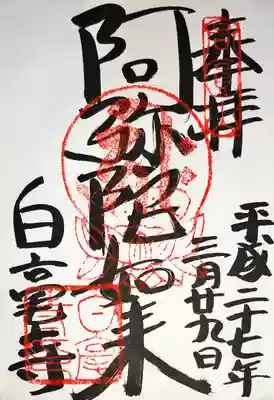 奉拝
平成二十七年
三月廿九日
阿弥陀如来